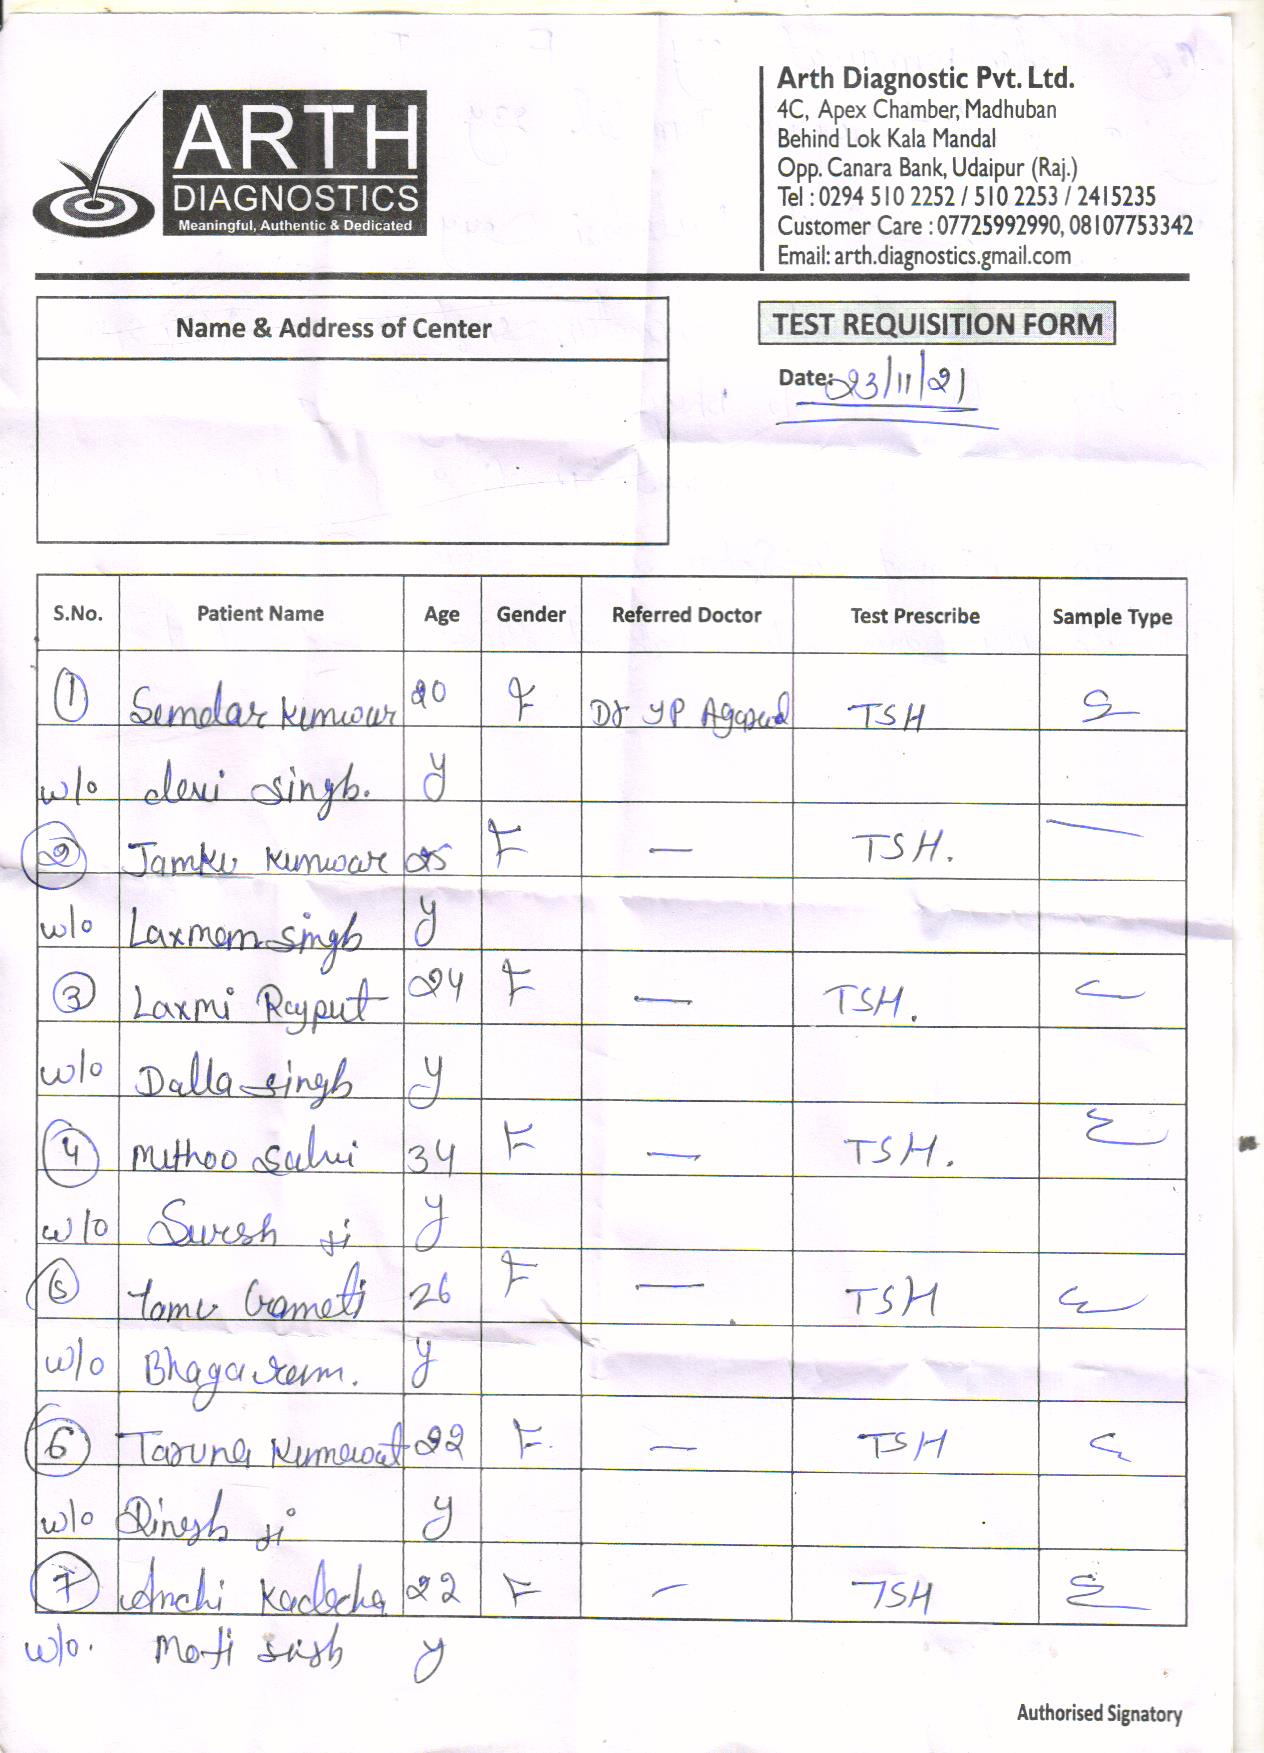 ARTH
DIAGNOSTICS
Meaningful, Authentic & Dedicated
Arth Diagnostic Pvt. Ltd.
4C, Apex Chamber, Madhuban
Behind Lok Kala Mandal
Opp. Canara Bank, Udaipur (Raj.)
Tel : 0294 510 2252 / 510 2253 / 2415235
Customer Care : 07725992990, 08107753342
Email: arth.diagnostics.gmail.com
Name & Address of Center
TEST REQUISITION FORM
Date: 23/11/21
S.No. Patient Name Age Gender Referred Doctor Test Prescribe Sample Type
1 Kunwar 20 F Dr YP TSH
w/o devi singh. y
2 Jamku Kunwar 25 F — TSH. —
w/o singh y
3 Laxmi Rajput 24 F — TSH.
w/o Dalla singh y
4 Mithoo Salvi 34 F — TSH.
w/o Suresh Ji y
5 Gameti 26 F — TSH
w/o y
6 Taruna Kumawat 22 F. — TSH
w/o Dinesh Ji y
7 22 F - TSH
w/o. Moti y
Authorised Signatory